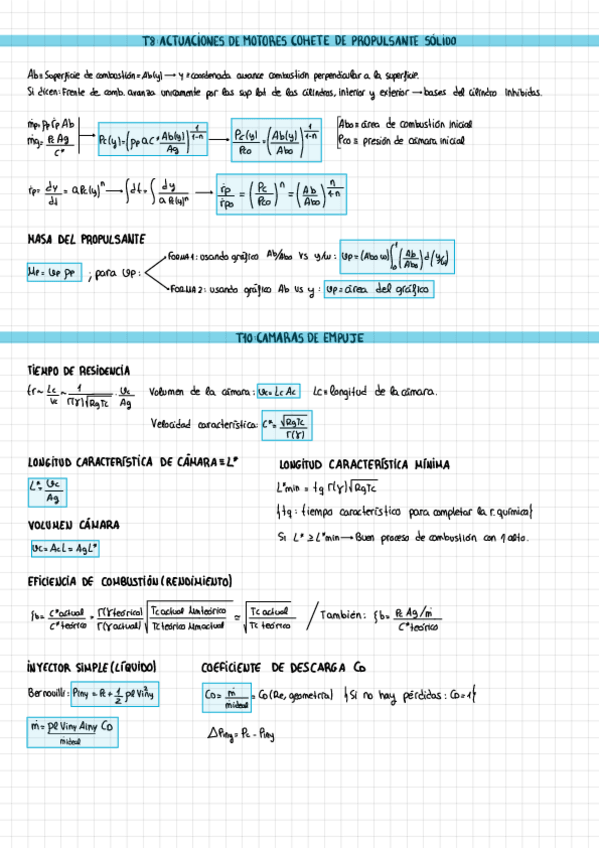 T8: ACTUACIONES DE MOTORES COHETE DE PROPULSANTE SÓLIDO
Ab ≡ Superficie de combustión = Ab(y) → y ≡ coordenada avance combustión perpendicular a la superficie.
Si dicen: Frente de comb. avanza unicamente por las sup lat de los cilindros, interior y exterior → bases del cilindro inhibidas.
ṁp = ρp ṙp Ab
ṁg = Pc Ag / C*
Pc(y) = (ρp a C* Ab(y)/Ag)^(1/(1-n)) → Pc(y)/Pco = (Ab(y)/Abo)^(1/(1-n))
Abo ≡ área de combustión inicial
Pco ≡ presión de cámara inicial
ṙp = dy/dt = a Pc(y)^n → ∫dt = ∫ dy/(a Pc(y)^n) → ṙp/ṙpo = (Pc/Pco)^n = (Ab/Abo)^(n/(1-n))
MASA DEL PROPULSANTE
Mp = Vp ρp ; para Vp:
FORMA 1: usando gráfico Ab/Abo vs y/w: Vp = (Abo w) ∫₀¹ (Ab/Abo) d(y/w)
FORMA 2: usando gráfico Ab vs y: Vp = área del gráfico
T10: CAMARAS DE EMPUJE
TIEMPO DE RESIDENCIA
tr ~ Lc/Vc ~ 1/(Γ(γ)√RgTc) · Vc/Ag
Volumen de la cámara: Vc = Lc Ac
Lc = longitud de la cámara.
Velocidad característica: C* = √RgTc / Γ(γ)
LONGITUD CARACTERÍSTICA DE CÁMARA ≡ L*
L* = Vc/Ag
LONGITUD CARACTERÍSTICA MÍNIMA
L*min = tq Γ(γ)√RgTc
{tq: tiempo característico para completar la r. química}
Si L* ≥ L*min → Buen proceso de combustión con η alto.
VOLUMEN CÁMARA
Vc = Ac L = Ag L*
EFICIENCIA DE COMBUSTIÓN (RENDIMIENTO)
ξb = C*actual / C*teórico = Γ(γ teórico)/Γ(γ actual) √(Tc actual Mm teórico / Tc teórico Mm actual) ≅ √(Tc actual / Tc teórico) / También: ξb = (Pc Ag/ṁ) / C*teórico
INYECTOR SIMPLE (LÍQUIDO)
Bernouilli: Piny = Pc + 1/2 ρl Viny²
ṁ = ρl Viny Ainy CD
ṁideal
COEFICIENTE DE DESCARGA CD
CD = ṁ/ṁideal = CD (Re, geometría) {Si no hay pérdidas: CD = 1}
ΔPiny = Pc - Piny